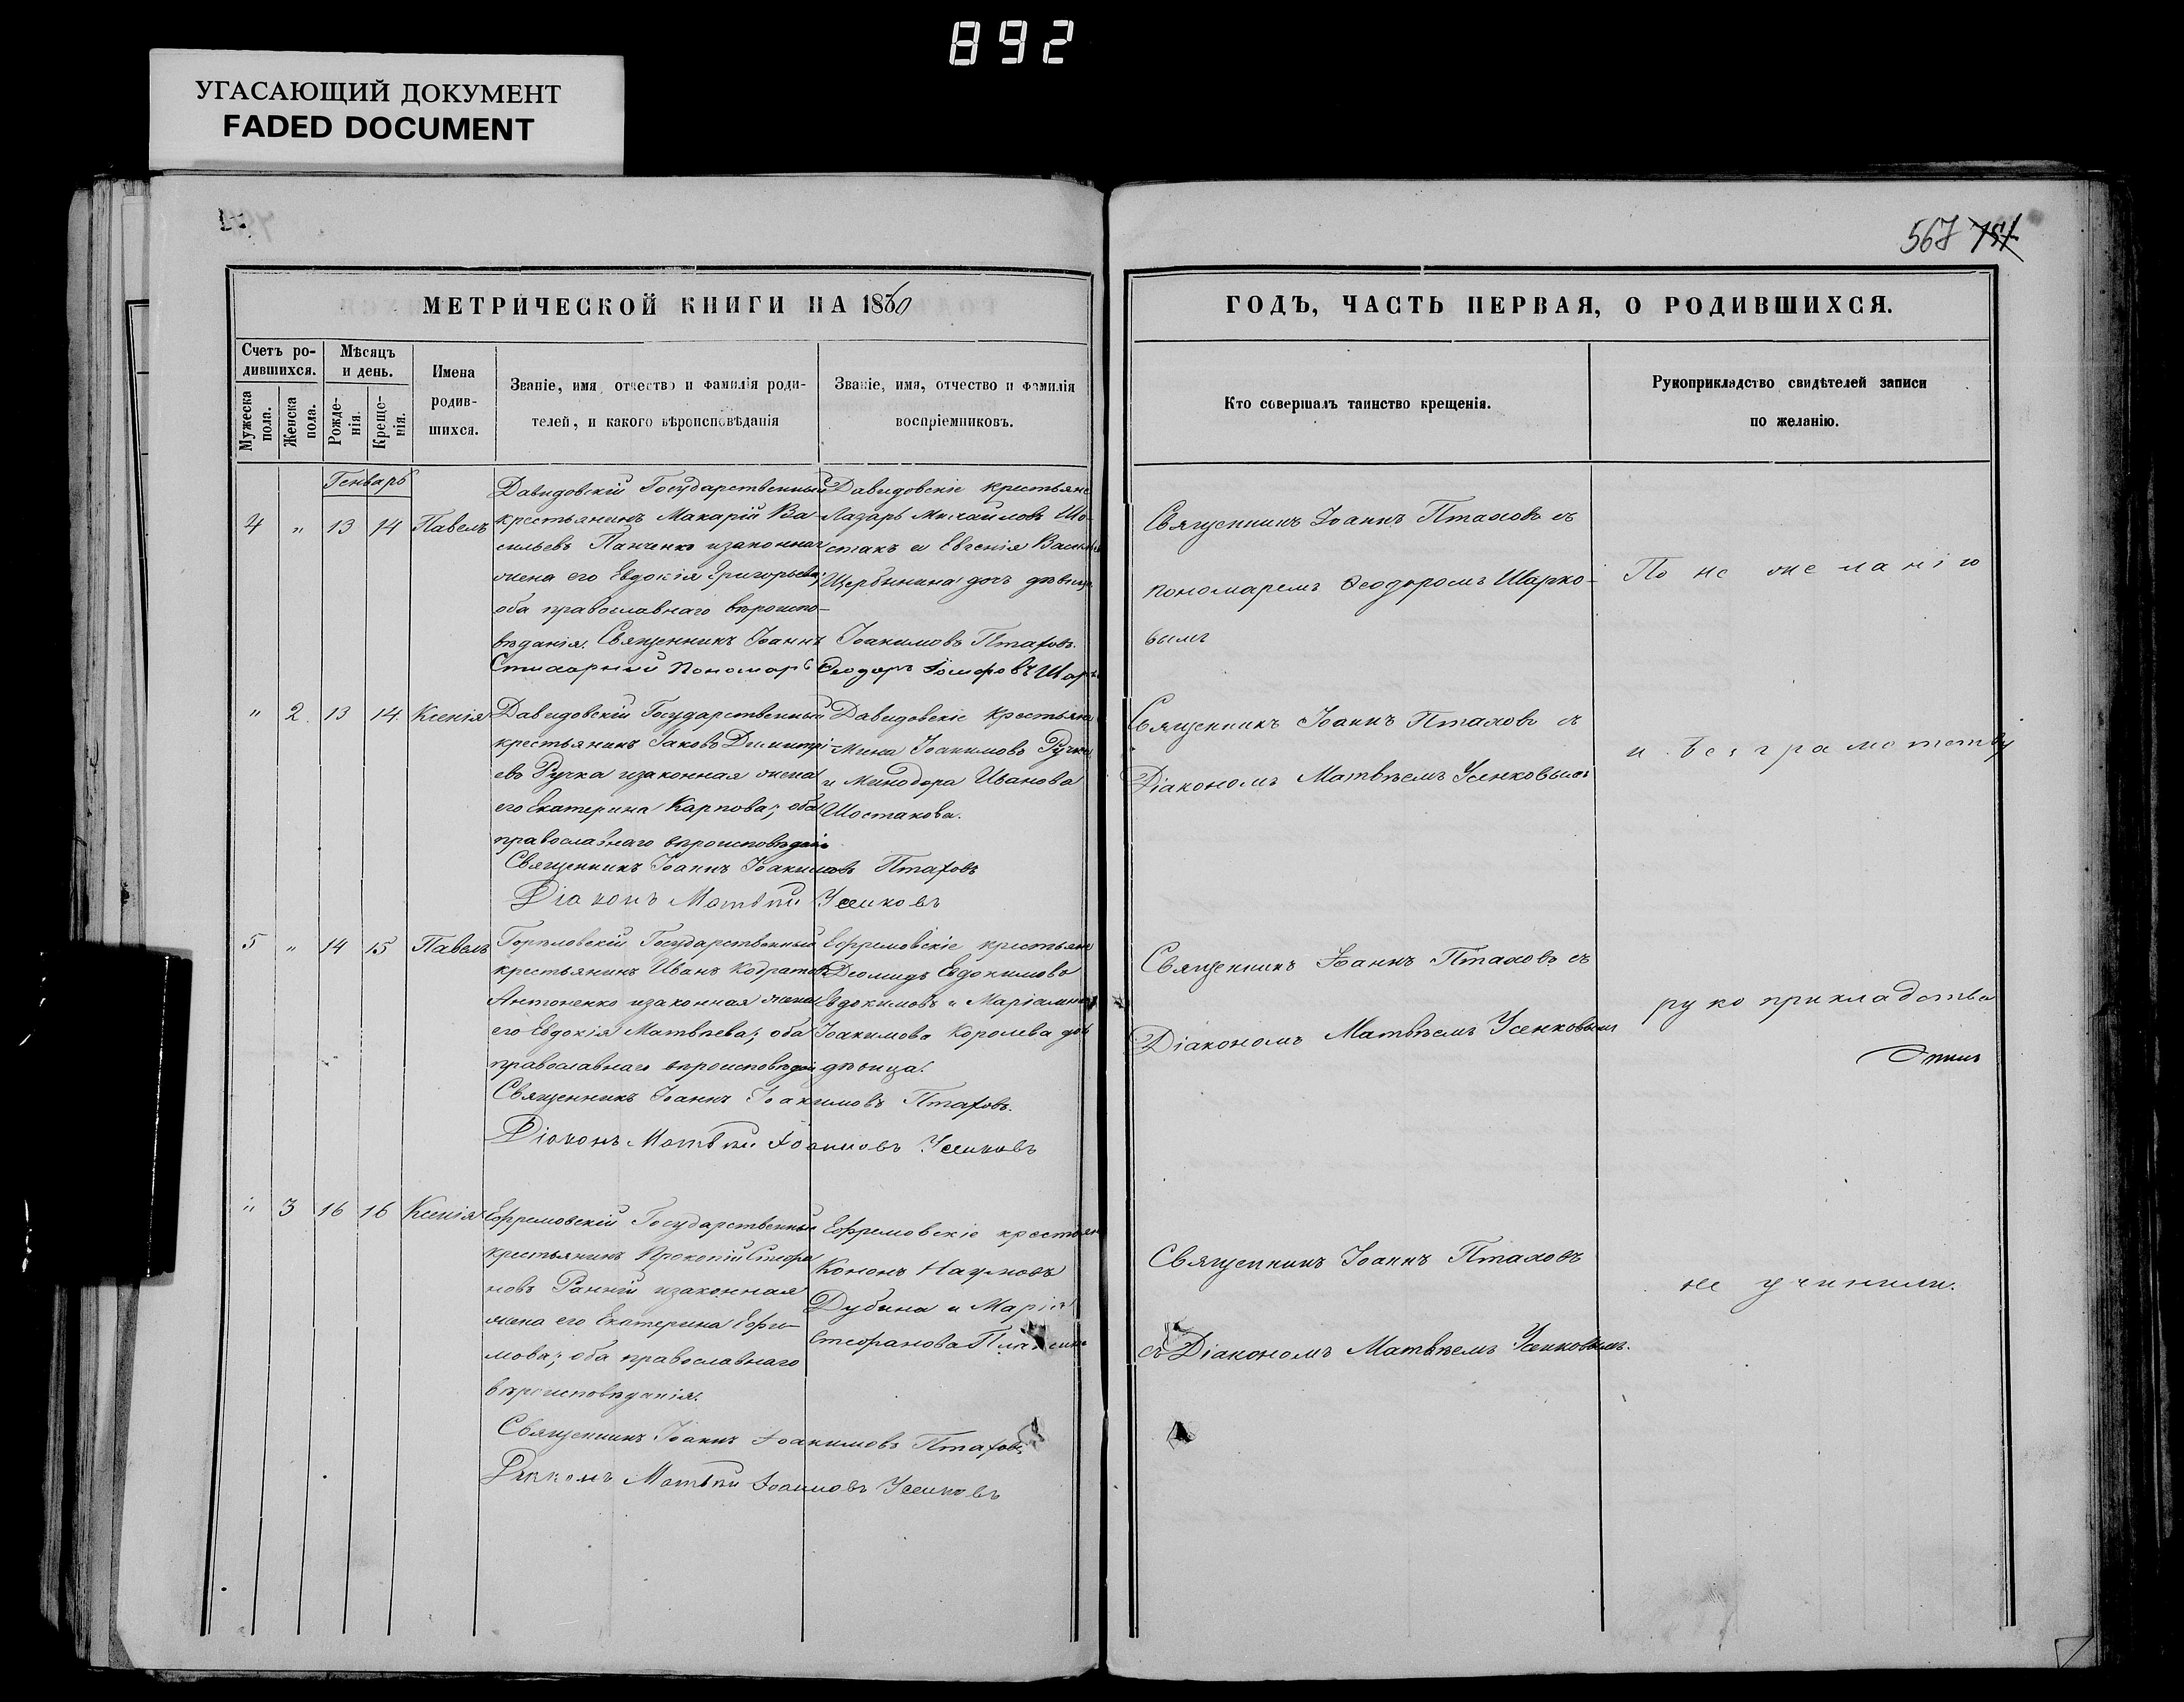 892
УГАСАЮЩИЙ ДОКУМЕНТ
FADED DOCUMENT
567 751
МЕТРИЧЕСКОЙ КНИГИ НА 1860
Счетъ ро-
дившихся.
Мужеска
пола.
Женска
пола.
Мѣсяцъ
и день.
Рожде-
нія.
Креще-
нія.
Имена
родив-
шихся.
Званіе, имя, отчество и фамилія роди-
телей, и какого вѣроисповѣданія
Званіе, имя, отчество и фамилія
воспріемниковъ.
ГОДЪ, ЧАСТЬ ПЕРВАЯ, О РОДИВШИХСЯ.
Кто совершалъ таинство крещенія.
Рукоприкладство свидѣтелей записи
по желанію.
Генварь
4 " 13 14 Павелъ
Давидовскій Государственный
крестьянинъ Макарій Ва-
сильевъ Панченко и законная
жена его Евдокія Григорьева;
оба православнаго вѣроиспо-
вѣданія. Священникъ Іоаннъ Іоакимовъ Птаховъ.
Стихарный Пономарь Ѳеодоръ
Давидовскіе крестьяне
Лазарь Михайловъ Шо-
стакъ и Евгенія
Щербинина дочь дѣвица
Священникъ Іоаннъ Птаховъ съ
пономаремъ Ѳеодоромъ Шарко-
вымъ
По не желанію
" 2 13 14 Ксенія
Давидовскій Государственный
крестьянинъ Іаковъ Димитрі-
евъ Ручка и законная жена
его Екатерина Карпова; оба
православнаго вѣроисповѣданія
Священникъ Іоаннъ Іоакимовъ Птаховъ
Діаконъ Матвѣй Усенковъ
Давидовскіе крестьяне
Мина Іоакимовъ Ручка
и Минодора Иванова
Шостакова.
Священникъ Іоаннъ Птаховъ съ
Діакономъ Матвѣемъ Усенковымъ
и безграмотству
5 " 14 15 Павелъ
Горѣловскій Государственный
крестьянинъ Иванъ Кодратовъ
Антоненко и законная жена
его Евдокія Матвѣева; оба
православнаго вѣроисповѣданія
Священникъ Іоаннъ Іоакимовъ Птаховъ.
Діаконъ Матвѣй Іоанновъ Усенковъ
Ефремовскіе крестьяне
Деомидъ Евдокимовъ
Евдокимовъ и Маріамна
Іоакимова Королева дочь
дѣвица.
Священникъ Іоаннъ Птаховъ съ
Діакономъ Матвѣемъ Усенковымъ
рукоприкладства
" 3 16 16 Ксенія
Ефремовскій Государственный
крестьянинъ Прокопій Стефа
новъ Ранній и законная
жена его Екатерина Ефи-
мова; оба православнаго
вѣроисповѣданія.
Священникъ Іоаннъ Іоакимовъ Птаховъ.
Діаконъ Матвѣй Іоанновъ Усенковъ
Ефремовскіе крестьяне
Кононъ Наумовъ
Дубина и Марія
Стефанова
Священникъ Іоаннъ Птаховъ
съ Діакономъ Матвѣемъ Усенковымъ.
не учинили.